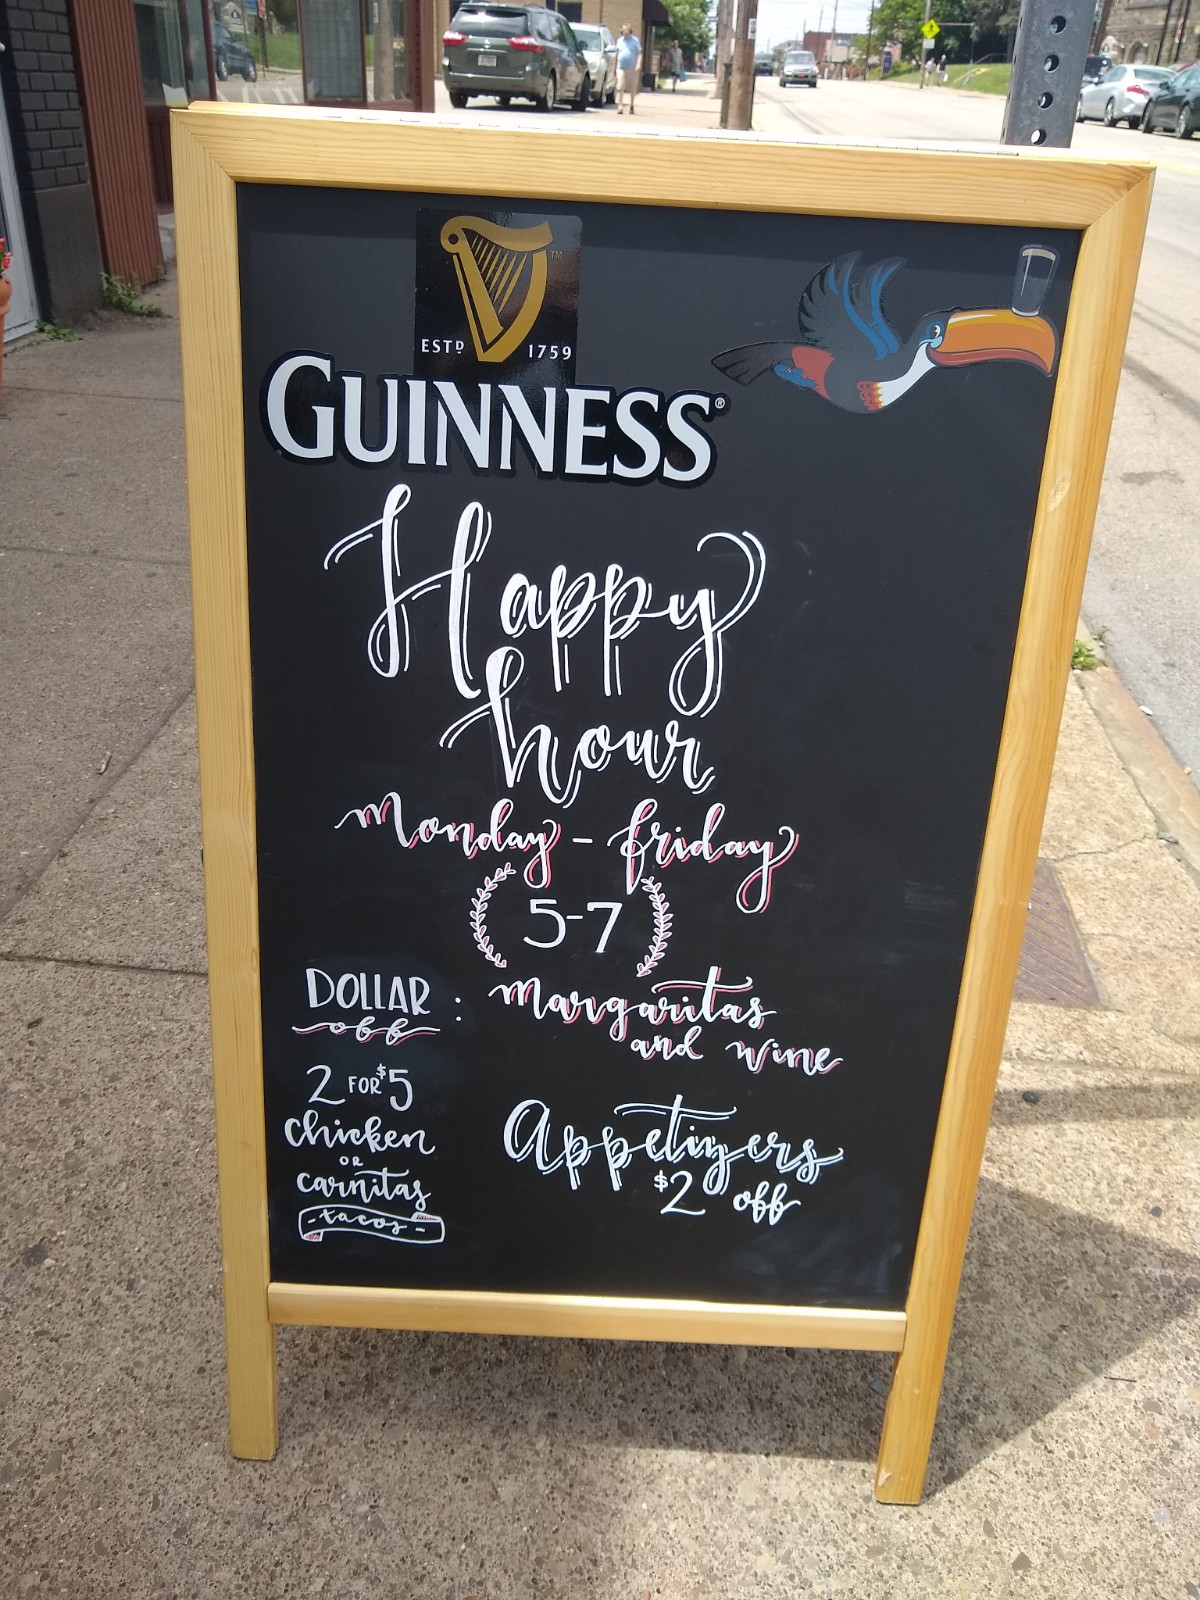 ESTD 1759
™
GUINNESS®
Happy
hour
Monday - friday
5-7
DOLLAR
off :
margaritas
and wine
2 FOR $5
chicken
OR
carnitas
-tacos-
Appetizers
$2 off